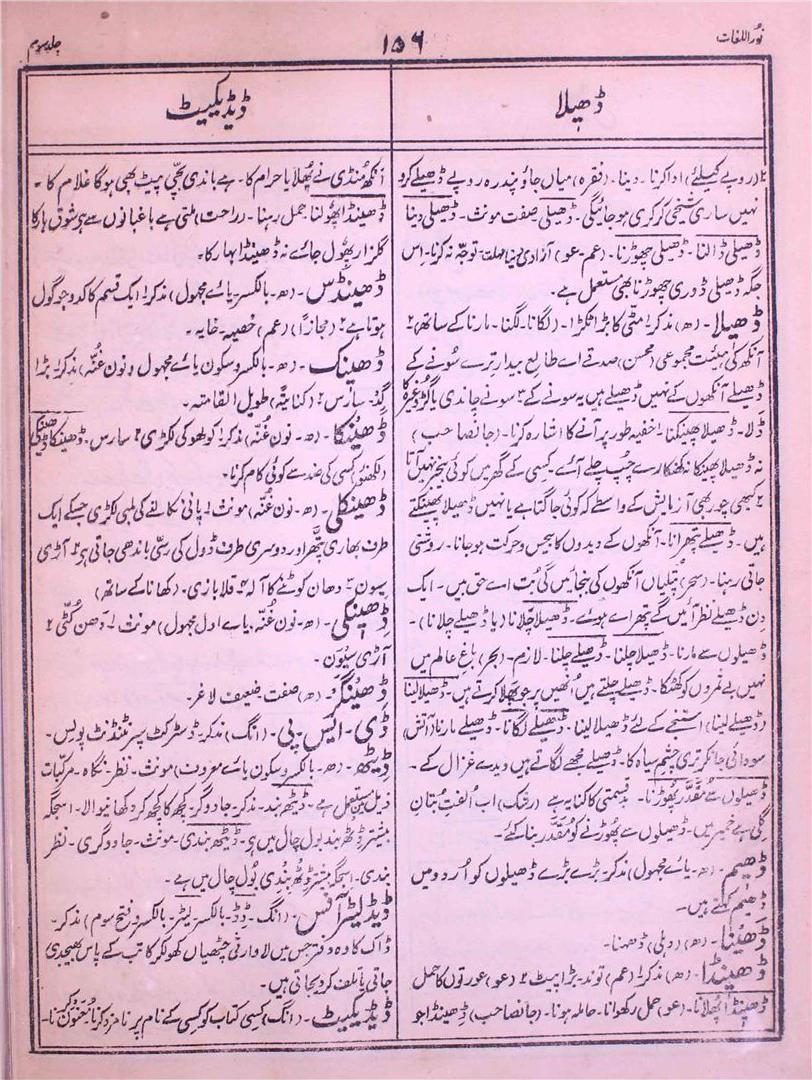 نور اللغات
۱۵۶
جلد سوم
ڈھیلا
ڈیڈیکیٹ
۲ (روپے کیلئے) ادا کرنا۔ دینا۔ (فقرہ) میاں جاؤ پندرہ روپے ڈھیلے کرو
نہیں ساری شیخی کرکری ہو جائیگی۔ ڈھیلی صفت مونث۔ ڈھیلی دینا
ڈھیلی ڈالنا۔ ڈھیلی چھوڑنا۔ (عم۔عو) آزادی دینا مہلت۔ توجہ نہ کرنا۔ اِس
جگہ ڈھیلی ڈوری چھوڑنا بھی مستعمل ہے۔
ڈھیلا۔ (ھ) مذکر ۱ مٹی کا بڑا ٹکڑا۔ (لگانا۔ لگنا۔ مارنا کے ساتھ) ۲
آنکھ کی ہیئت مجموعی (محسن) صدقے اے طالع بیدار ترے سونے کے
ڈھیلے آنکھوں کے نہیں ڈھیلے ہیں یہ سونے کے ۳ سونے چاندی یا گڑ وغیرہ کا
ڈلا۔ ڈھیلا پھینکنا ۱ خفیہ طور پر آنے کا اشارہ کرنا۔ (جانصاحب)
نہ ڈھیلا پھینکا نہ کھنکارے چپ چلے آئے۔ کسی کے گھر میں کوئی بیخبر نہیں آتا
۲ کبھی چور بھی آزمایش کے واسطے کہ کوئی جاگتا ہے یا نہیں ڈھیلا پھینکتے
ہیں۔ ڈھیلے پتھرانا۔ آنکھوں کے دیدوں کا بیحس و حرکت ہو جانا۔ روشنی
جاتی رہنا۔ (سحر) پتلیاں آنکھوں کی بنجائیں گی بُت اے حق بیں۔ ایک
دن ڈھیلے نظر آئیں گے پتھرائے ہوئے۔ ڈھیلا چلانا (یا ڈھیلے چلانا)۔
ڈھیلوں سے مارنا۔ ڈھیلا چلنا۔ ڈھیلے چلنا۔ لازم۔ (بحر) باغِ عالم میں
نہیں بے ثمروں کو کھٹکا۔ ڈھیلے چلتے ہیں اُنھیں پر جو پھلا کرتے ہیں۔ ڈھیلا لینا
(ڈھیلے لینا) استنجے کے لئے ڈھیلا لینا۔ ڈھیلے لگانا۔ ڈھیلے مارنا (آتش)
سودائی جا کر تری چشم سیاہ کا۔ ڈھیلے مجھے لگاتے ہیں دیدے غزال کے۔
ڈھیلوں سے مُقدّر پھوڑنا۔ بدقسمتی کا کنایہ ہے (رشک) اب اُلفتِ بتان
گِلی ہے خمیر میں۔ ڈھیلوں سے پھوڑنے کو مُقدّر بنا کئے۔
ڈھیم۔ (ھ۔ یائے مجہول) مذکر۔ بڑے بڑے ڈھیلوں کو اُردو میں
ڈھیم کہتے ہیں۔
ڈھینا۔ (ھ) (دہلی) ڈھہنا۔
ڈھینڈا۔ (ھ) مذکر ۱ (عم) توند۔ بڑا پیٹ ۲ (عو) عورتوں کا حمل
ڈھینڈا پھلانا۔ (عو) حمل رکھوانا۔ حاملہ ہونا۔ (جانصاحب) ڈھینڈا جو
آنکھ مُنڈی نے پُھلایا حرام کا۔ ہے باندی بچّی پیٹ بھی ہوگا غلام کا۔
ڈھینڈا پھولنا۔ حمل رہنا۔ (راحت) ملتی ہے باغبانوں سے ہر شوق ہار کا
گلزار پھول جائے نہ ڈھینڈا بہار کا۔
ڈھینڈس۔ (ھ۔ بالکسر۔ یائے مجہول) مذکر ۱ ایک قسم کا کدو جو گول
ہوتا ہے ۲ (مجازاً) (عم) خصیہ۔ خایہ۔
ڈھینک۔ (ھ۔ بالکسر و سکون یائے مجہول و نون غُنّہ) مذکر ۱ بڑا
گِد۔ سارس ۲ (کنایۃً) طویل القامتہ۔
ڈھینکا۔ (ھ۔ نون غُنّہ) مذکر ۱ کولھو کی لکڑی ۲ سارس۔ ڈھینکا ڈھینکی
(لکھنؤ) کسی کی ضد سے کوئی کام کرنا۔
ڈھینکلی۔ (ھ۔ نون غُنّہ) مونث ۱ پانی نکالنے کی لمبی لکڑی جسکے ایک
طرف بھاری پتھر اور دوسری طرف ڈول کی رسّی باندھی جاتی ہی ۲ آڑی
سیون ۳ دھان کوٹنے کا آلہ ۴ قلابازی۔ (کھانا کے ساتھ)
ڈِھینکی۔ (ھ۔ نون غُنّہ، یاے اول مجہول) مونث ۱ دھن کُٹّی ۲
آڑی سیون۔
ڈھینگر۔ (ھ) صفت۔ ضعیف لاغر۔
ڈی۔ ایس۔ پی۔ (انگ) مذکر۔ ڈسٹرکٹ سپرنٹنڈنٹ پولیس۔
ڈیٹھ۔ (ھ۔ بالکسر و سکون یائے معروف) مونث۔ نظر۔ نگاہ۔ مرکبات
ذیل میں مستعمل ہے۔ ڈیٹھ بند۔ مذکر۔ جادوگر۔ کچھ کا کچھ کر دکھانیوالا۔ اسجگہ
بیشتر ڈٹھ بند بول چال میں ہی۔ ڈیٹھ بندی۔ مونث۔ جادوگری۔ نظر
بندی۔ اسجگہ بیشتر ڈٹھ بندی بول چال میں ہے۔
ڈیڈ لیٹر آفس۔ (انگ۔ ڈِڈ۔ بالکسر۔ لیٹر۔ بالکسر و فتح سوم) مذکر۔
ڈاک کا وہ دفتر جس میں لاوارثی چٹھیاں کھولکر کاتب کے پاس بھیجدی
جاتی یا تلف کر دیجاتی ہیں۔
ڈیڈیکیٹ۔ (انگ) کسی کتاب کو کسی کے نام پر نامزد کرنا۔ معنون کرنا۔